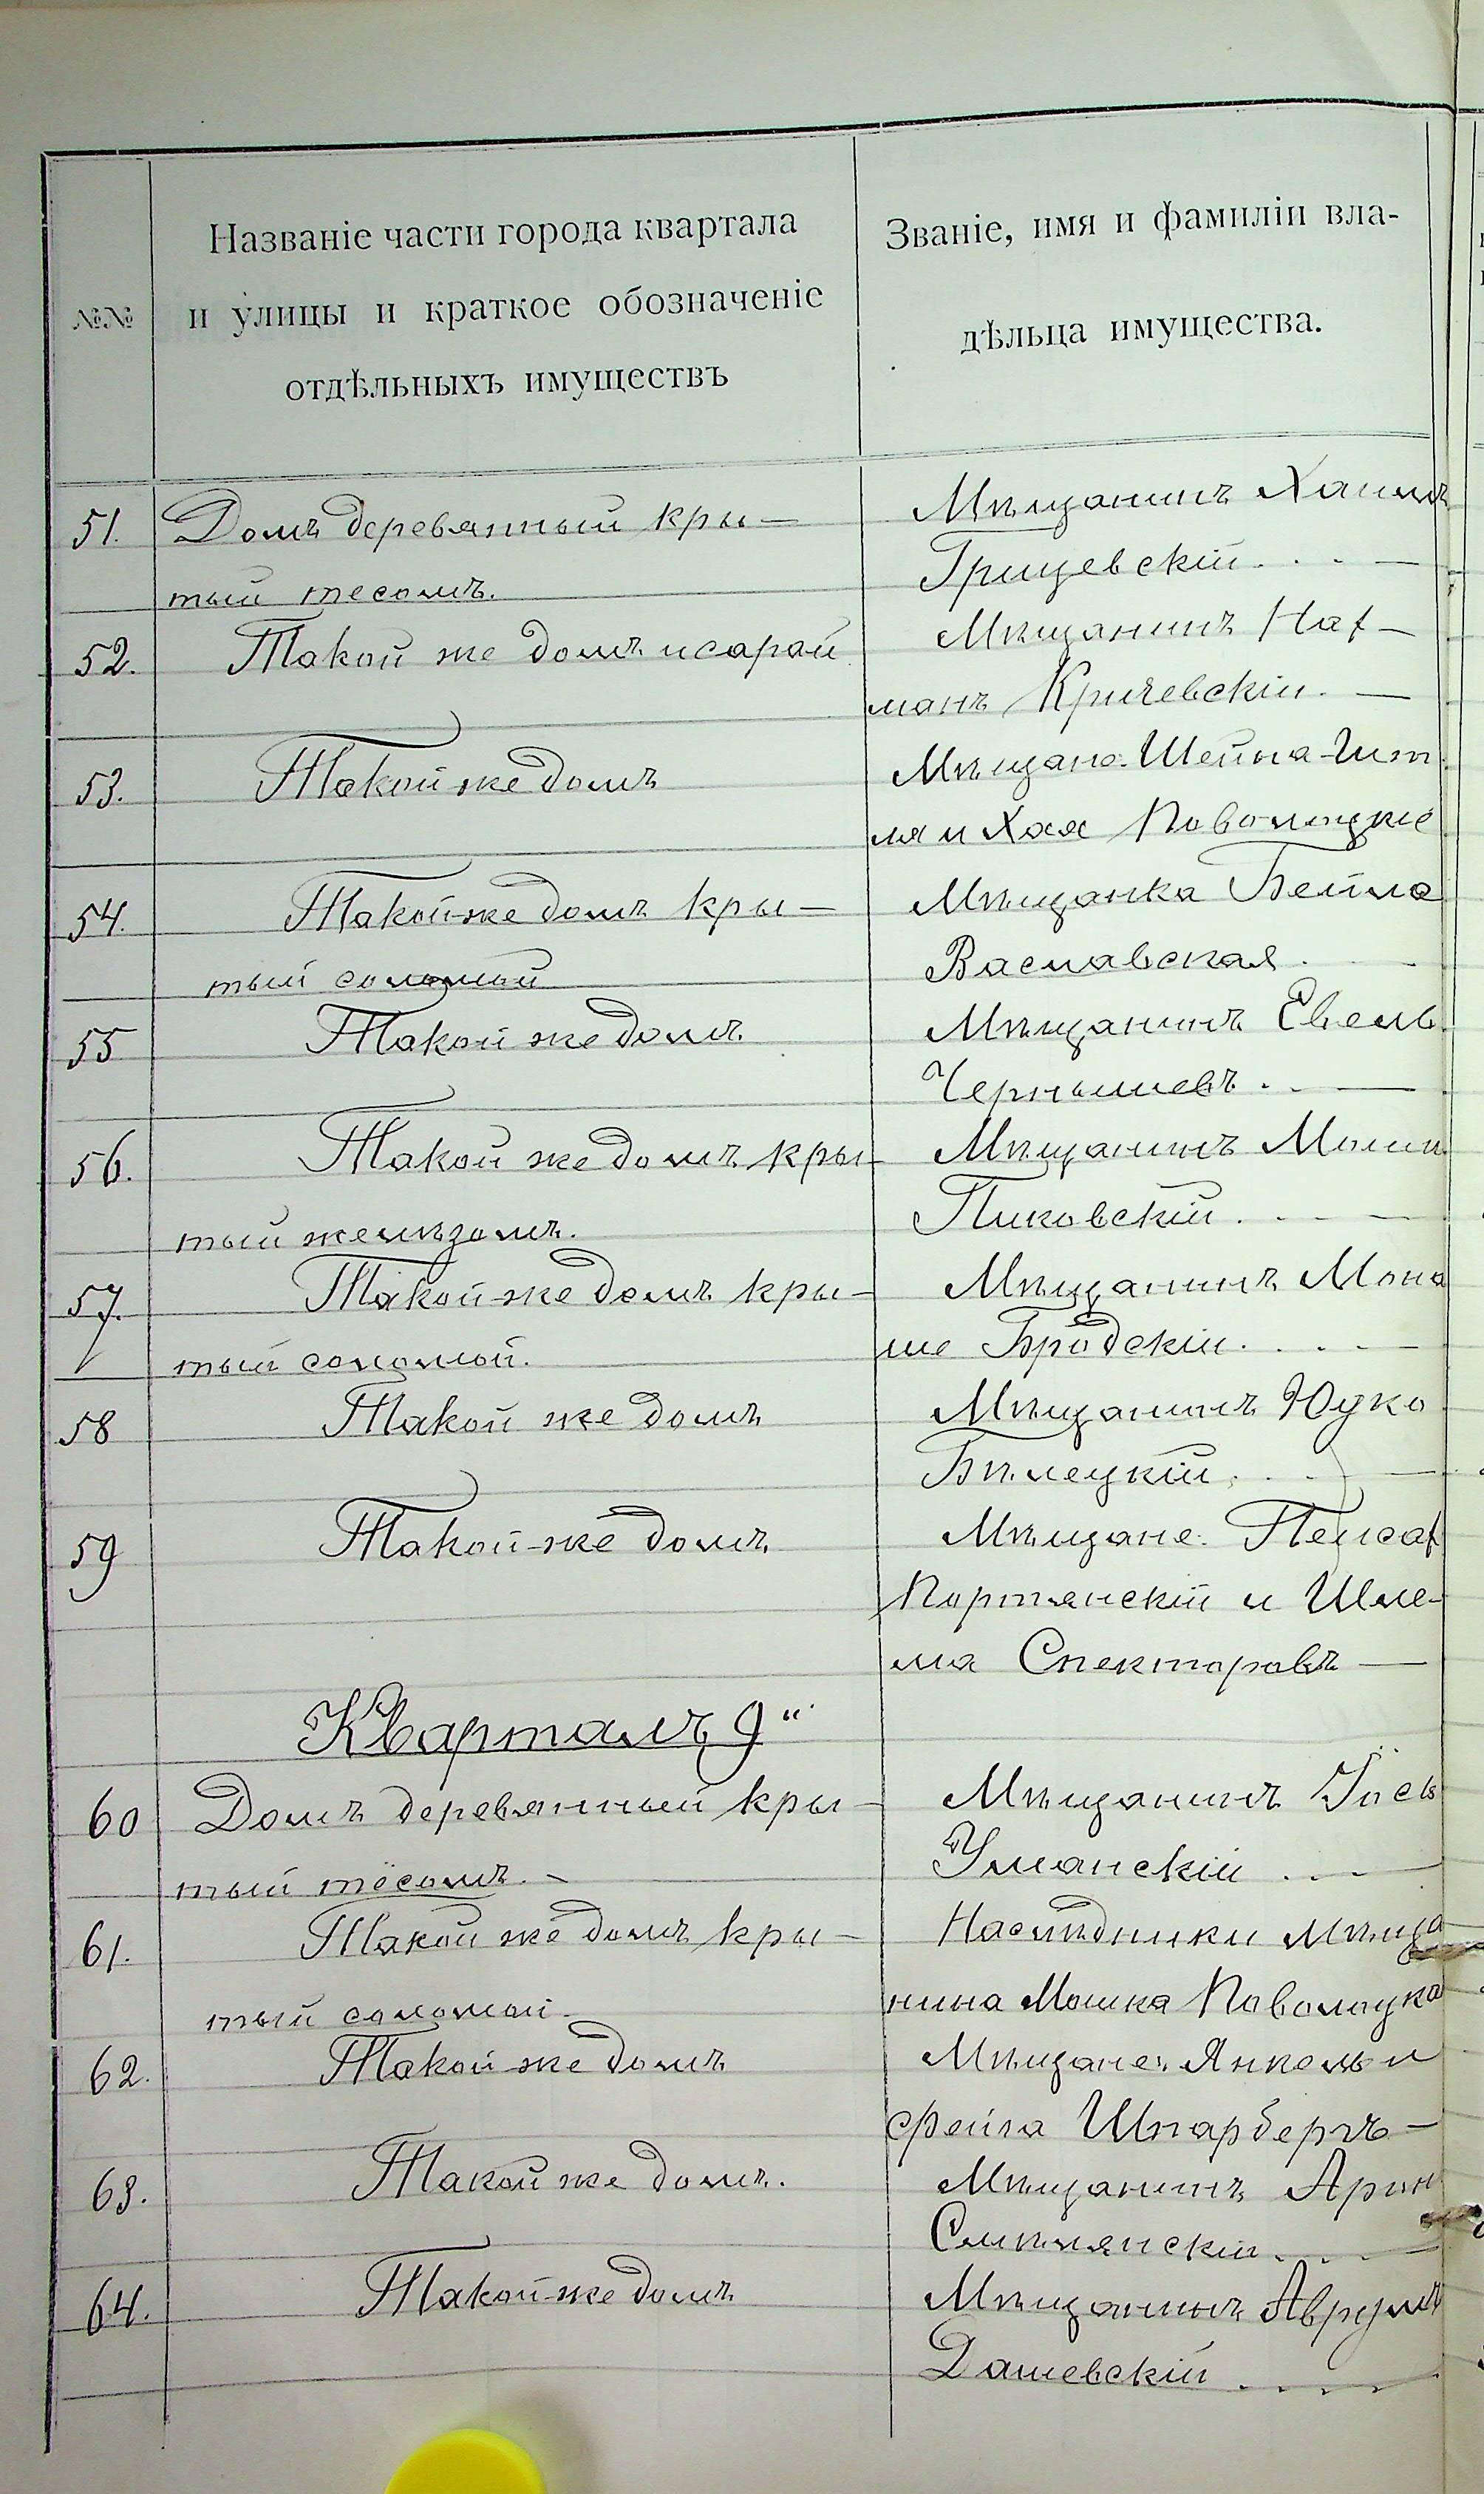 №№
Названіе части города квартала
и улицы и краткое обозначеніе
отдѣльныхъ имуществъ
Званіе, имя и фамиліи вла-
дѣльца имущества.
51. Домъ деревянный кры-
тый тесомъ.
Мѣщанинъ Хаимъ
Грищевскій
52. Такой же домъ и сарай
Мѣщанинъ Нах-
манъ Кричевскій.
53. Такой же домъ
Мѣщане Шейна-
ля и Хая Поволоцкіе
54. Такой же домъ кры-
тый соломой
Мѣщанка Бейла
Заславская
55 Такой же домъ
Мѣщанинъ Евель
Чернышевъ
56. Такой же домъ кры-
тый желѣзомъ.
Мѣщанинъ
Пиковскій
57. Такой же домъ кры-
тый соломой.
Мѣщанинъ Мона
ше Бродскій
58 Такой же домъ
Мѣщанинъ Юдко
Бѣлецкій
59 Такой-же домъ
Мѣщане Пейсах
Портянскій и Шле-
ма Спекторовъ
Кварталъ 9"
60 Домъ деревянный кры-
тый тёсомъ.
Мѣщанинъ Іось
Уманскій
61. Такой же домъ кры-
тый соломой
Наслѣдники мѣща
нина Мошка Поволоцка
62. Такой же домъ
Мѣщане: Янкель и
Фейга Шпарбергъ
63. Такой же домъ.
Мѣщанинъ Арон
Смѣлянскій
64. Такой же домъ
Мѣщанинъ Аврумъ
Дашевскій